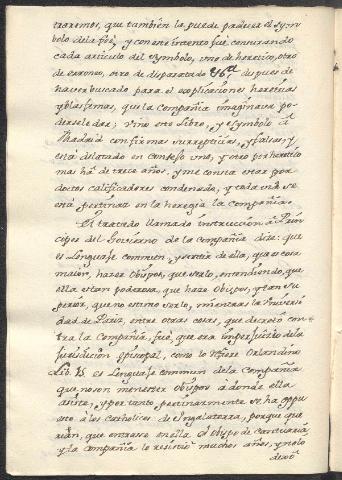 traremos, que tambien la puede padecer el sym-
bolo dela feè, y con este intento fuè censurando
cada articulo del symbolo, uno de heretico, otro
de erroneo, otro de disparatado &c.ª despues de
haver buscado para el explicaciones hereticas
y blasfemas, que la Compañia imaginava po-
dersele dar; vino este Libro, y el symbolo à
Madrid con firmas surrepticias, y falsas, y
està dilatado en confeso una, y otro por heretico
mas hà de trece años, y me consta estar por
doctos calificadores condenado, y cada una se
està pertinaz en la heregia la compañia.
El tratado llamado instruccion à Prin-
cipes del Govierno de la Compañia dice: que
es Lenguaje commun, y sentir de ella, que es cosa
maior, hazer Obispos, que serlo, entendiendo, que
ella es tan poderosa, que haze Obispos, y tan su
perior, que no estima serlo, mientras la Universi
dad de Paris, entre otras cosas, que decretò con-
tra la Compañia, fuè, que era imperjuicio dela
jurisdicion Episcopal, como lo refiere Orlandino
Lib. 15 es Lenguaje commun de la Compañia
que no son menester Obispos à donde ella
asiste, y por tanto pertinazmente se ha oppu
esto à los Catholicos de Ingalaterra, porque que
rian, que entrasse en ella el Obispo de Cantuaria,
y la compañia lo resistiò muchos años, y nolo